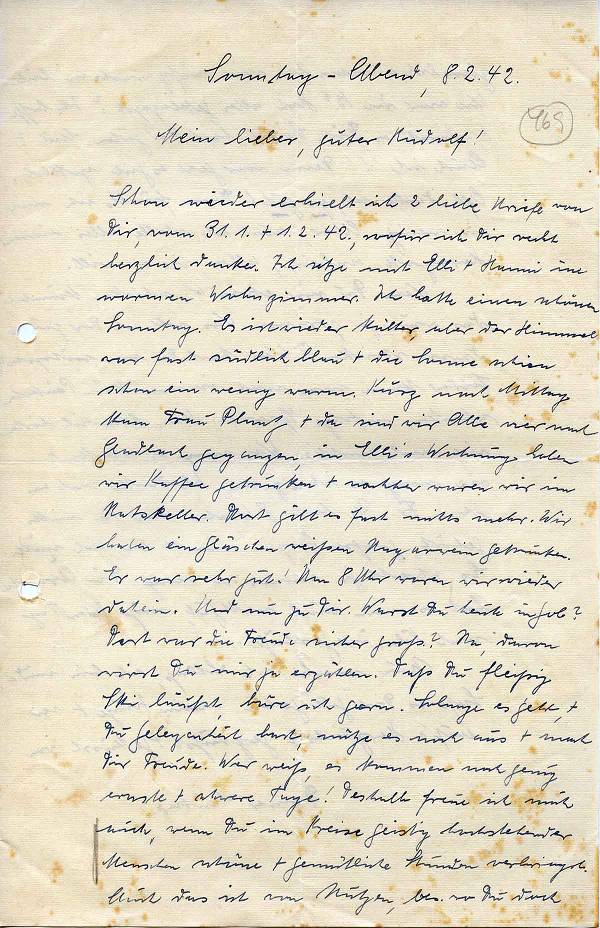 Sonntag-Abend, 8.2.42.
469
Mein lieber, guter Rudolf!
Schon wieder erhielt ich 2 liebe Briefe von
Dir, vom 31.1. + 1.2.42., wofür ich Dir recht
herzlich danke. Ich sitze mit Elli + Hanni im
warmen Wohnzimmer. Ich hatte einen schönen
Sonntag. Es ist wieder kälter, aber der Himmel
war fast südlich blau + die Sonne schien
schon ein wenig warm. Kurz nach Mittag
kam Frau + da sind wir Alle vier nach
Gladbach gegangen, in Elli's Wohnung haben
wir Kaffee getrunken + nachher waren wir im
Ratskeller. Dort gibt es fast nichts mehr. Wir
haben ein Gläschen weißen Ungarwein getrunken.
Er war sehr gut! Um 8 Uhr waren wir wieder
daheim. Und nun zu Dir. Warst Du heute in
Dort war die Freude sicher groß? Na, davon
wirst Du mir ja erzählen. Daß Du fleißig
Ski läufst, höre ich gern. Solange es geht, +
Du Gelegenheit hast, nütze es noch aus + mach
Dir Freude. Wer weiß, es kommen noch genug
ernste + schwere Tage! Deshalb freue ich mich
auch, wenn Du im Kreise geistig hochstehender
Menschen schöne + gemütliche Stunden verbringst.
Auch das ist von Nutzen, bes. wo Du doch